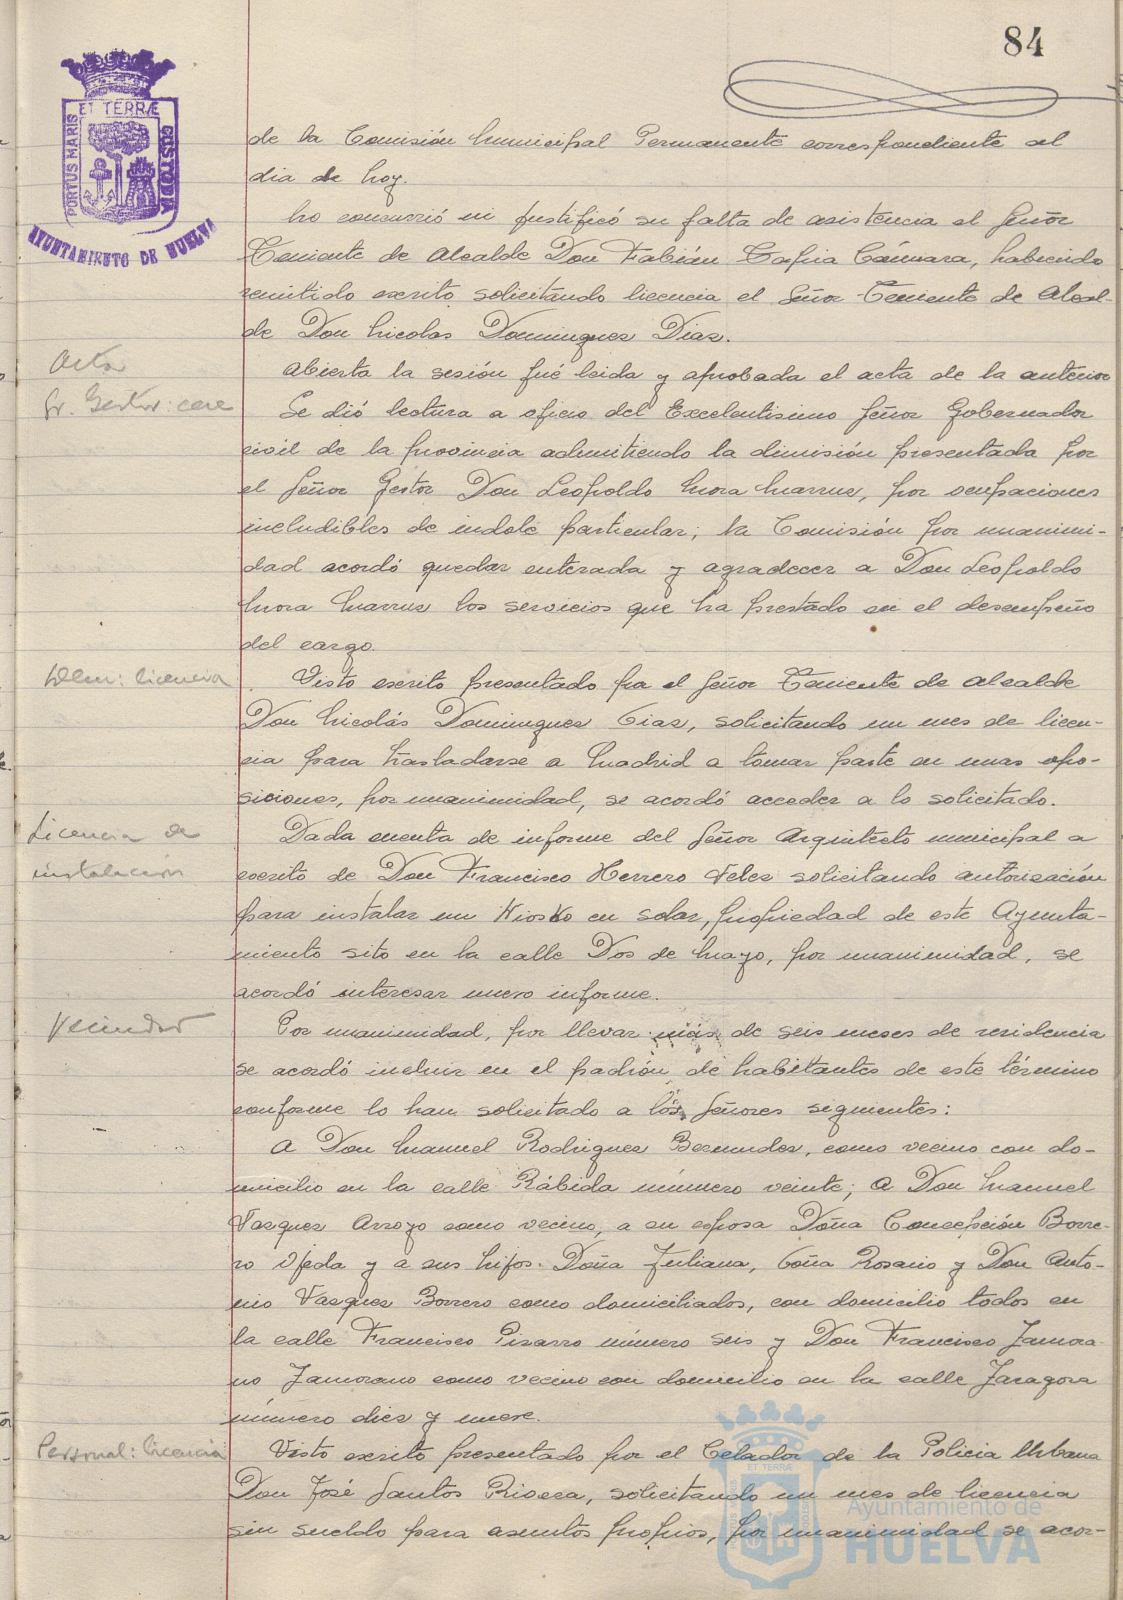 84
PORTUS MARIS ET TERRÆ CUSTODIA
AYUNTAMIENTO DE HUELVA
de la Comisión Municipal Permanente correspondiente al
dia de hoy.
No concurrió ni justificó su falta de asistencia el Señor
Teniente de Alcalde Don Fabián Tapia Cámara, habiendo
remitido escrito solicitando licencia el Señor Teniente de Alcal-
de Don Nicolas Dominguez Diaz.
Acta
Abierta la sesión fué leida y aprobada el acta de la anterior
Sr. Gestor: cese
Se dió lectura a oficio del Excelentisimo Señor Gobernador
civil de la provincia admitiendo la dimisión presentada por
el Señor Gestor Don Leopoldo Mora Marrus, por ocupaciones
ineludibles de indole particular; la Comisión por unanimi-
dad acordó quedar enterada y agradecer a Don Leopoldo
Mora Marrus los servicios que ha prestado en el desempeño
del cargo.
Idem: licencia
Visto escrito presentado por el Señor Teniente de alcalde
Don Nicolás Dominguez Diaz, solicitando un mes de licen-
cia para trasladarse a Madrid a tomar parte en unas opo-
siciones, por unanimidad, se acordó acceder a lo solicitado.
Licencia de
instalación
Dada cuenta de informe del Señor Arquitecto municipal a
escrito de Don Francisco Herrero Velez solicitando autorización
para instalar un Kiosko en solar, propiedad de este Ayunta-
miento sito en la calle Dos de Mayo, por unanimidad, se
acordó interesar nuevo informe.
Vecindad
Por unanimidad, por llevar más de seis meses de residencia
se acordó incluir en el padrón de habitantes de este término
conforme lo han solicitado a los Señores siguientes:
A Don Manuel Rodriguez Bermudez, como vecino con do-
micilio en la calle Rábida número veinte; a Don Manuel
Vazquez Arroyo como vecino, a su esposa Doña Concepción Borre-
ro Ojeda y a sus hijos. Doña Juliana, Doña Rosario y Don Anto-
nio Vazquez Borrero como domiciliados, con domicilio todos en
la calle Francisco Pizarro número seis y Don Francisco Zamora-
no Zamorano como vecino con domicilio en la calle Zaragoza
número diez y nueve.
Personal: licencia
Visto escrito presentado por el Celador de la Policia Urbana
Don José Santos Rivera, solicitando un mes de licencia
sin sueldo para asuntos propios, por unanimidad se acor-
Ayuntamiento de
HUELVA